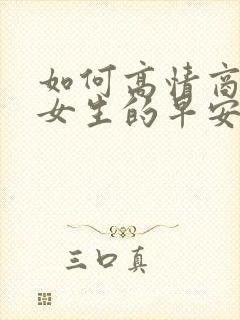 如何高情商
女生的早安
三口真